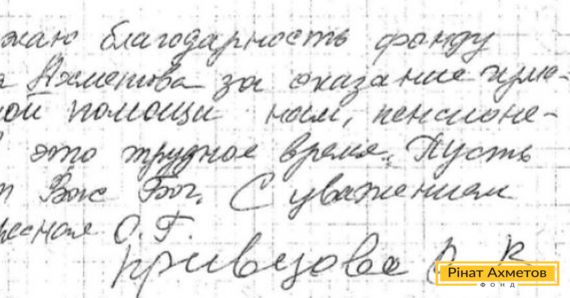 жаю благодарность фонду
а Ахметова за оказание гума-
ой помощи нам, пенсионе-
это трудное время. Пусть
т Вас Бог. С уважением
О. Г.
Рінат Ахметов
ФОНД